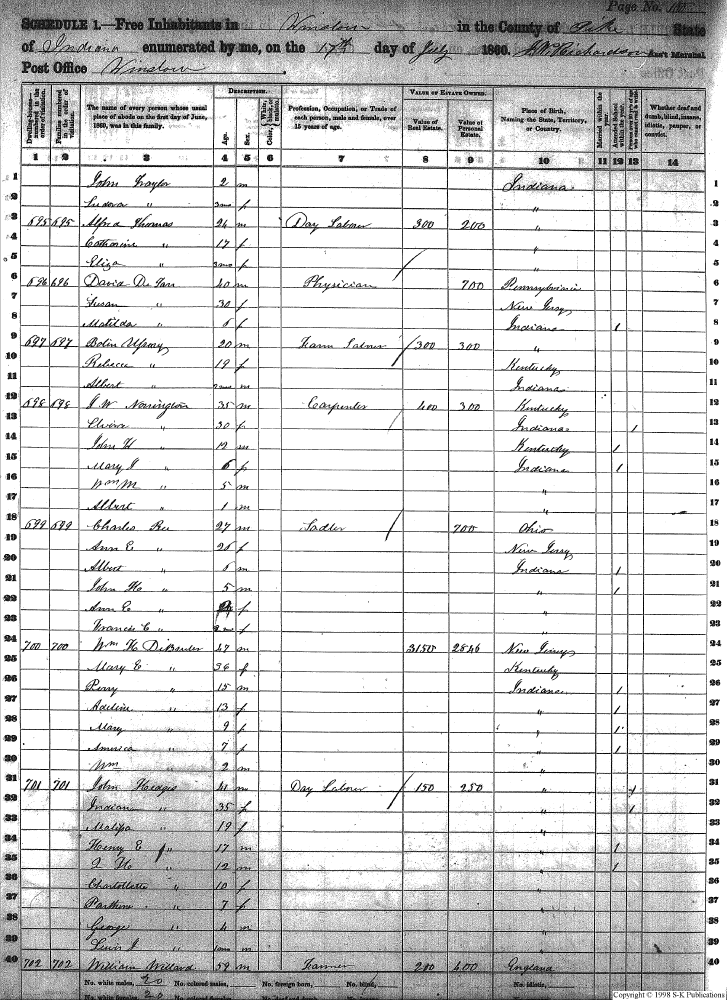 Page No.
SCHEDULE 1.—Free Inhabitants in Winslow in the County of Pike State
of Indiana enumerated by me, on the 17th day of July 1860. Richardson Ass't Marshal
Post Office Winslow.
Dwelling-houses—numbered in the order of visitation. Families numbered in the order of visitation. The name of every person whose usual place of abode on the first day of June, 1860, was in this family. DESCRIPTION. Age. Sex. Color, White, black, or mulatto. Profession, Occupation, or Trade of each person, male and female, over 15 years of age. VALUE OF ESTATE OWNED. Value of Real Estate. Value of Personal Estate. Place of Birth, Naming the State, Territory, or Country. Married within the year. Attended School within the year. Whether deaf and dumb, blind, insane, idiotic, pauper, or convict.
1 2 3 4 5 6 7 8 9 10 11 12 13 14
1 John Traylor 2 m Indiana 1
2 " f " 2
3 695 695 Alfred Thomas 26 m Day Labour 300 200 " 3
4 Catharine " 17 f " 4
5 Eliza " f " 5
6 696 696 David De Tarr 40 m Physician 700 Pennsylvania 6
7 Susan " 30 f New Jersy 7
8 Matilda " 6 f Indiana 1 8
9 697 697 20 m Farm 300 300 " 9
10 Rebecca " 19 f Kentucky 10
11 Albert " m Indiana 11
12 698 698 J W Norrington 35 m Carpenter 400 300 Kentucky 12
13 Elvira " 30 f Indiana 1 13
14 John H " 12 m Kentucky 1 14
15 Mary J " 6 f Indiana 1 15
16 Wm M " 5 m " 16
17 Albert " 1 m " 17
18 699 699 Charles 27 m Sadler 700 Ohio 18
19 Ann E " 26 f New Jersy 19
20 Albert " 6 m Indiana 1 20
21 John H " 5 m " 1 21
22 Ann E " f " 22
23 Francis E " f " 23
24 700 700 Wm H 47 m 3150 2846 New Jersy 24
25 Mary E " 36 f Kentucky 25
26 Perry " 15 m Indiana 1 26
27 Adeline " 13 f " 1 27
28 Mary " 9 f " 1 28
29 America " 7 f " 1 29
30 Wm " 2 m " 30
31 701 701 John Hedges 41 m Day Labour 150 250 " 1 31
32 Indian " 35 f " 1 32
33 Malissa " 19 f " 33
34 Henry E " 17 m " 1 34
35 " 12 m " 1 35
36 Charlottette " 10 f " 36
37 " 7 f " 37
38 George " 4 m " 38
39 Lewis J " m " 39
40 702 702 William Willard 59 m Farmer 200 400 England 40
No. white males, 20 No. colored males, No. foreign born, No. blind,
No. white females, 20 No. colored females, No. idiotic,
Copyright © 1998 S-K Publications